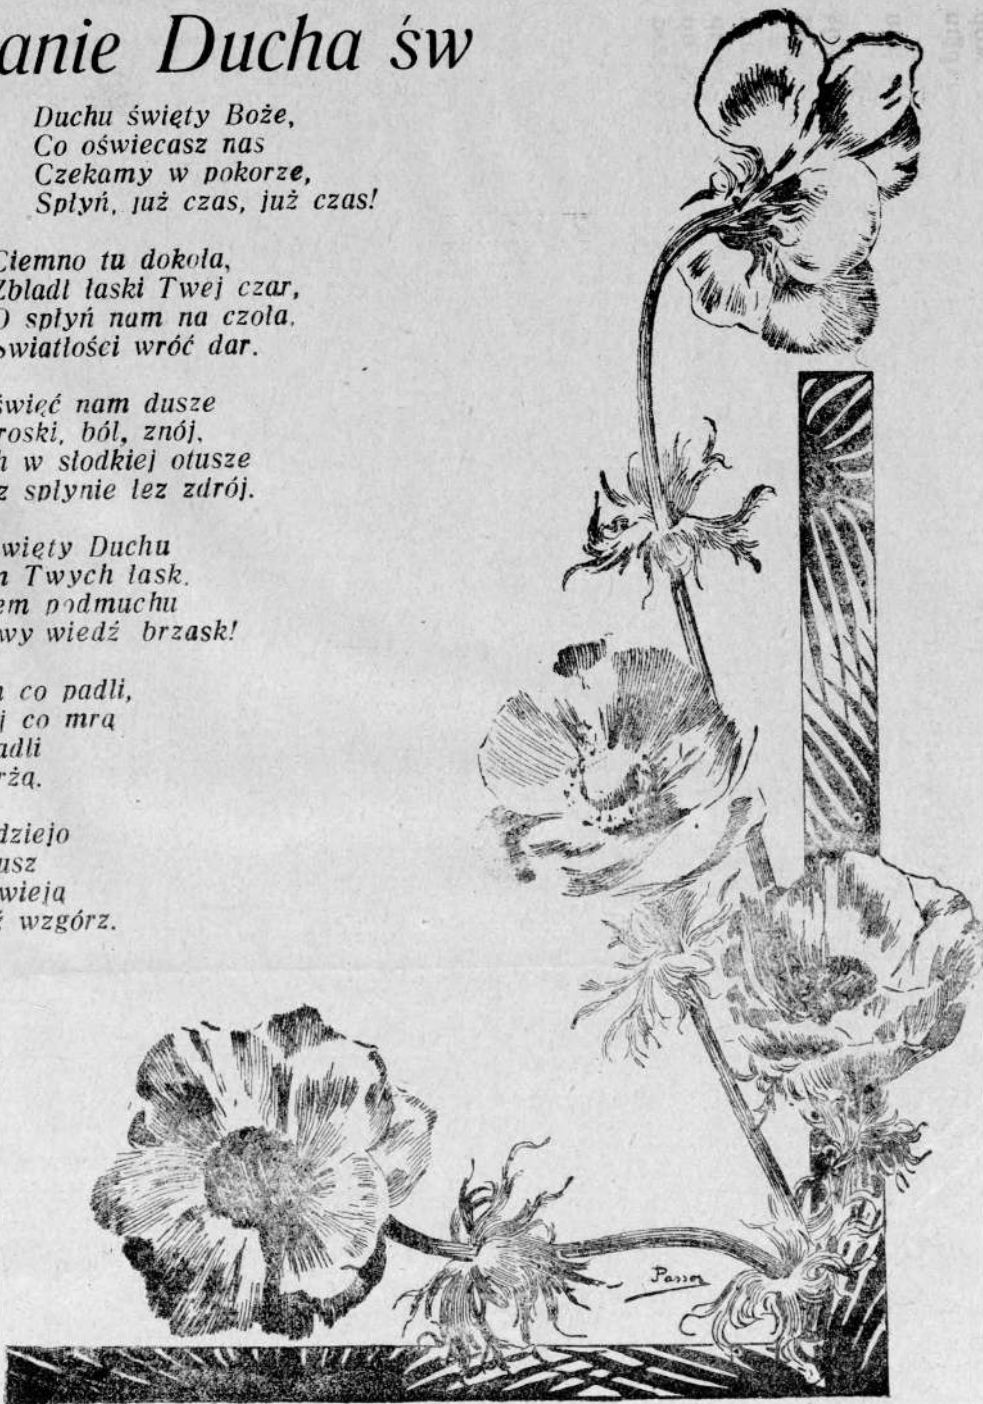 anie Ducha św
Duchu święty Boże,
Co oświecasz nas
Czekamy w pokorze,
Spłyń, już czas, już czas!
Ciemno tu dokoła,
Zbladl łaski Twej czar,
O spłyń nam na czoła,
Światłości wróć dar.
święć nam dusze
roski, ból, znój,
h w słodkiej otusze
z spłynie łez zdrój.
więty Duchu
n Twych łask.
em podmuchu
wy wiedź brzask!
co padli,
j co mrą
adli
rżą.
dziejo
usz
wieją
ź wzgórz.